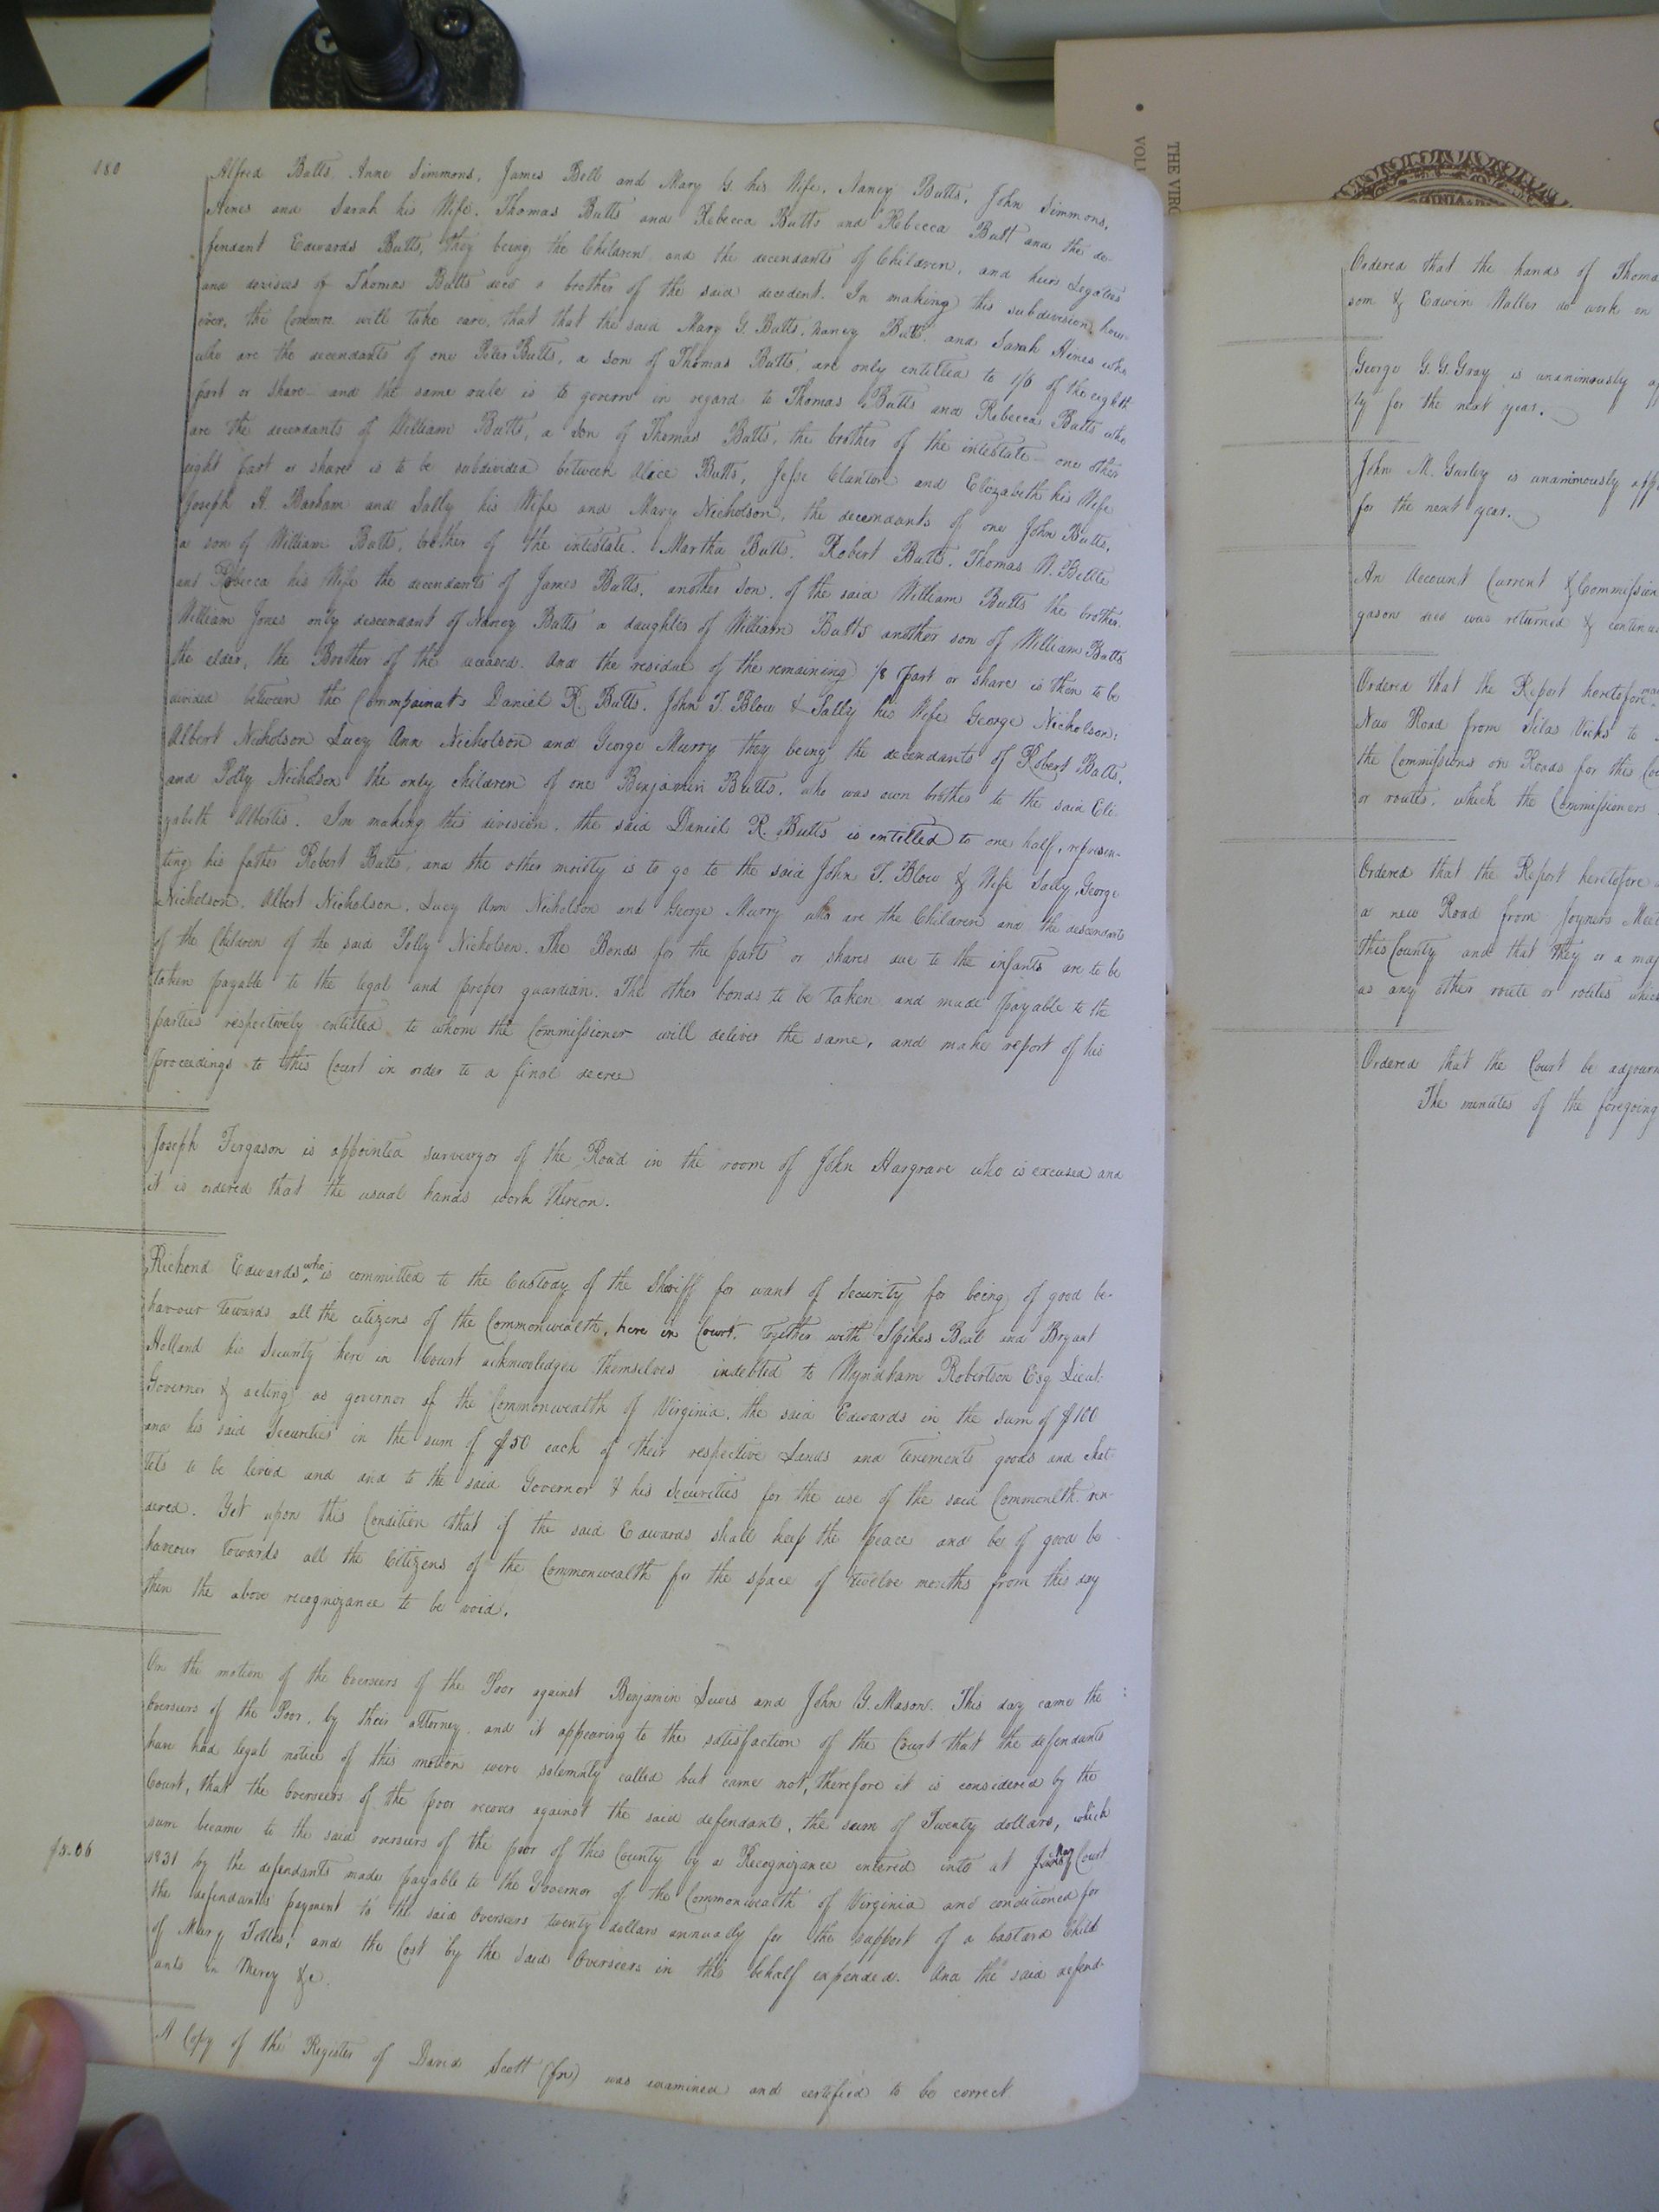 180
Alfred Butts, Anne Simmons, James Bell and Mary G. his Wife, Nancy Butts, John Simmons,
Hines and Sarah his Wife, Thomas Butts and Rebecca Butts and Rebecca Butt and the de
fendant Edwards Butts, they being the Children and the decendants of Children, and heirs Legatees
and devisees of Thomas Butts decd a brother of the said decedent. In making this subdivision, how-
ever, the Commrs. will take care, that that the said Mary G. Butts, Nancy Butts, and Sarah Hines who
who are the decendants of one Peter Butts, a son of Thomas Butts, are only entitled to 1/6 of the eighth
part or share and the same rule is to govern in regard to Thomas Butts and Rebecca Butts who
are the decendants of William Butts, a son of Thomas Butts, the brother of the intestate one other
eight part or share is to be subdivided between Alice Butts, Jesse Clanton and Elizabeth his Wife
Joseph H. Barham and Sally his Wife and Mary Nicholson, the decendants of one John Butts,
a son of William Butts, brother of the intestate. Martha Butts, Robert Butts, Thomas W. Bettle
and Rebecca his Wife the decendants of James Butts, another son, of the said William Butts the brother.
William Jones only descendant of Nancy Butts a daughter of William Butts another son of William Butts
the elder, the Brother of the deceased. And the residue of the remaining 1/8 part or share is then to be
divided between the Complainants Daniel R. Butts, John T. Blow & Sally his Wife George Nicholson,
Albert Nicholson Lucy Ann Nicholson and George Murry they being the decendants of Robert Butts,
and Polly Nicholson the only children of one Benjamin Butts, who was own brother to the said Eli
zabeth Albertis. In making this division, the said Daniel R. Butts is entitled to one half, represen-
ting his father Robert Butts, and the other moiety is to go to the said John T. Blow & Wife Sally, George
Nicholson, Albert Nicholson, Lucy Ann Nicholson and George Murry who are the Children and the descendants
of the Children of the said Polly Nicholson. The Bonds for the parts or shares due to the infants are to be
taken payable to the legal and proper guardian. The other bonds to be taken and made payable to the
parties respectively entitled to whom the Commissioner will deliver the same, and make report of his
proceedings to this Court in order to a final decree
Joseph Fergason is appointed surveyor of the Road in the room of John Hargrave who is excused and
it is ordered that the usual hands work thereon.
Richond Edwards who is committed to the Custody of the Sheriff for want of Security for being of good be-
haviour towards all the citizens of the Commonwealth, here in Court. Together with Spikes Beal and Bryant
Holland his Security here in Court acknowledged themselves indebted to Wyndham Robertson Esq Lieut.
Governor & acting as governor of the Commonwealth of Virginia, the said Edwards in the sum of $100
and his said Securities in the sum of $50 each of their respective Lands and tenements goods and chat-
tels to be levied and and to the said Governor & his Securities for the use of the said Commonlth. ren-
dered. Yet upon this Condition that if the said Edwards shall keep the peace and be of good be
haviour towards all the Citizens of the Commonwealth for the space of twelve months from this day
then the above recognizance to be void.
On the motion of the Overseers of the Poor against Benjamin Lewis and John G. Mason. This day came the
Overseers of the Poor, by their attorney, and it appearing to the satisfaction of the Court that the defendants
have had legal notice of this motion were solemnly called but came not, therefore it is considered by the
Court, that the Overseers of the poor recover against the said defendants, the sum of Twenty dollars, which
sum became to the said overseers of the poor of this County by a Recognizance entered into at May Court
$5.06
1831 by the defendants made payable to the Governor of the Commonwealth of Virginia and conditioned for
the defendants payment to the said Overseers twenty dollars annually for the support of a bastard Child
of Mary, and the Cost by the said Overseers in this behalf expended. And the said defend-
ants in Mercy &c.
A Copy of the Register of David Scott (fn) was examined and certified to be correct.
THE VIRG
VOL
Ordered that the hands of Thoma
som & Edwin Waller do work on
George G. G. Gray is unanimously ap
ty for the next year.
John M. Gurley is unanimously app
for the next year.
An Account Current & Commission
gason decd was returned & continu
Ordered that the Report heretofore ma
New Road from Silas Vicks to
the Commissions on Roads for this Co
or routes, which the Commissioners
Ordered that the Report heretofore
a new Road from Joyners Meet
this County and that they or a maj
as any other route or routes which
Ordered that the Court be adjourn
The minutes of the foregoing